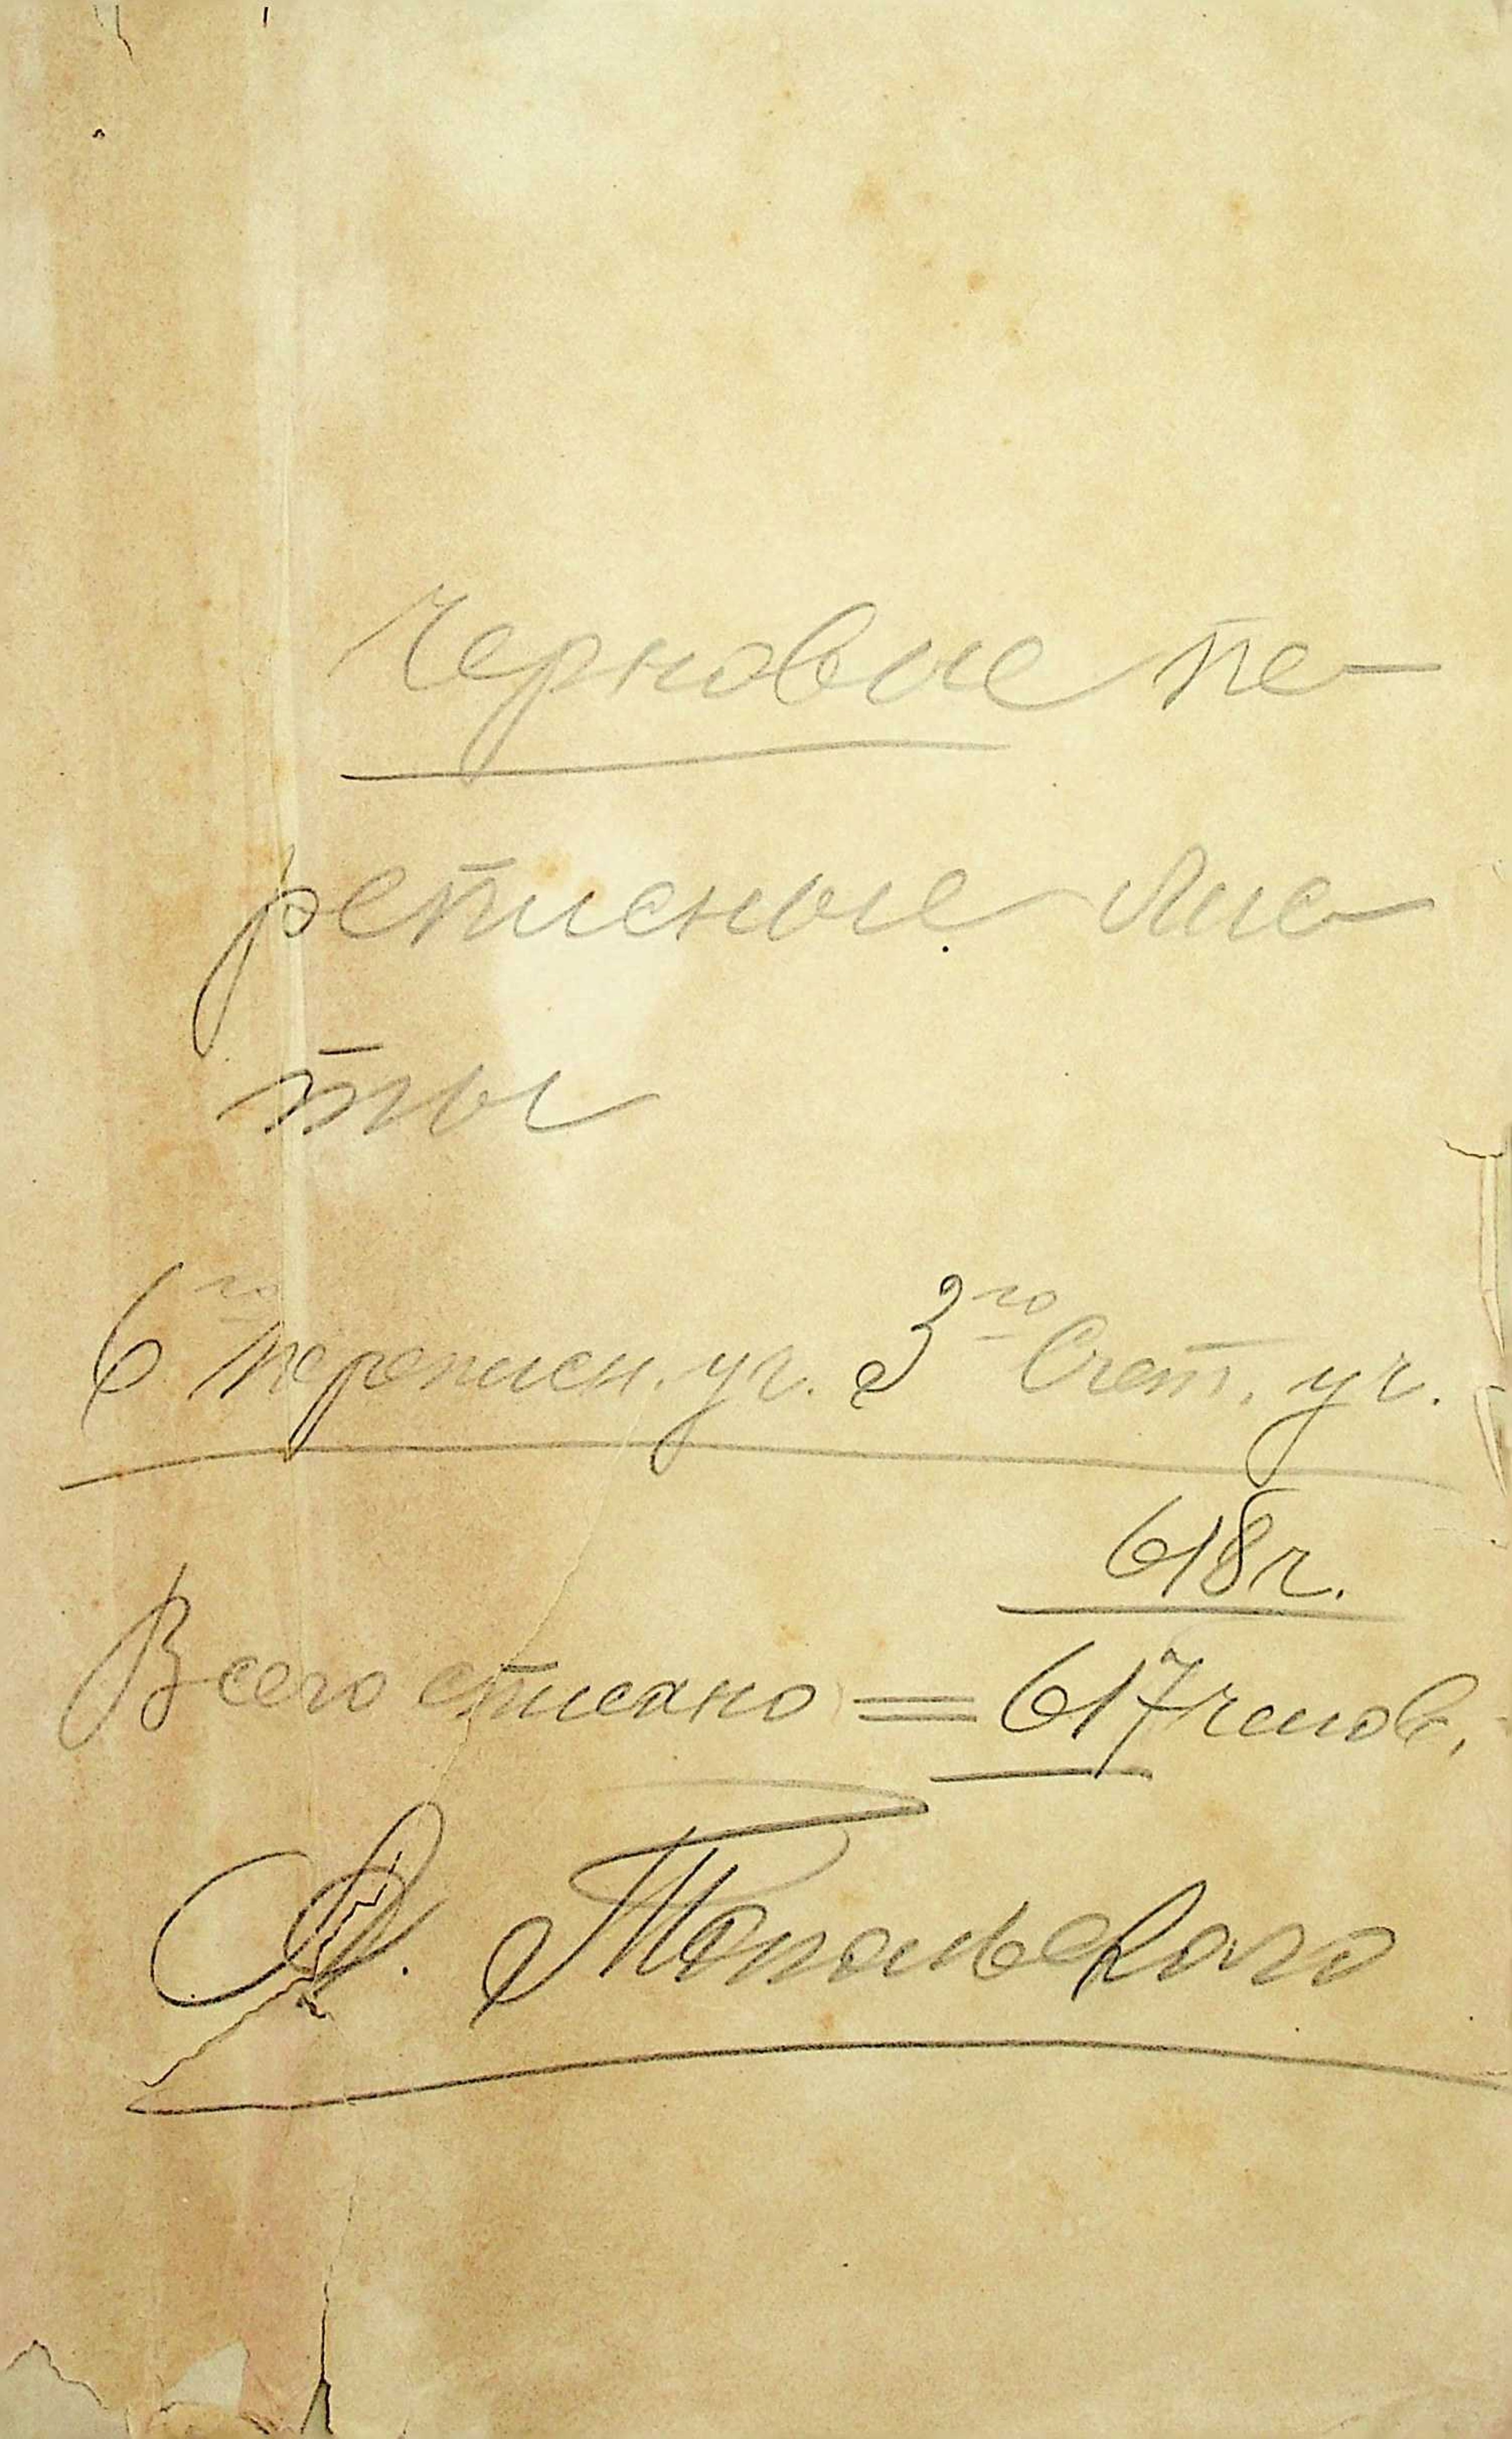 Черновые пе-
реписные лис-
ты
6го переписн. уч. 3го Счет. уч.
618 ч.
Всего списано = 617 челов.